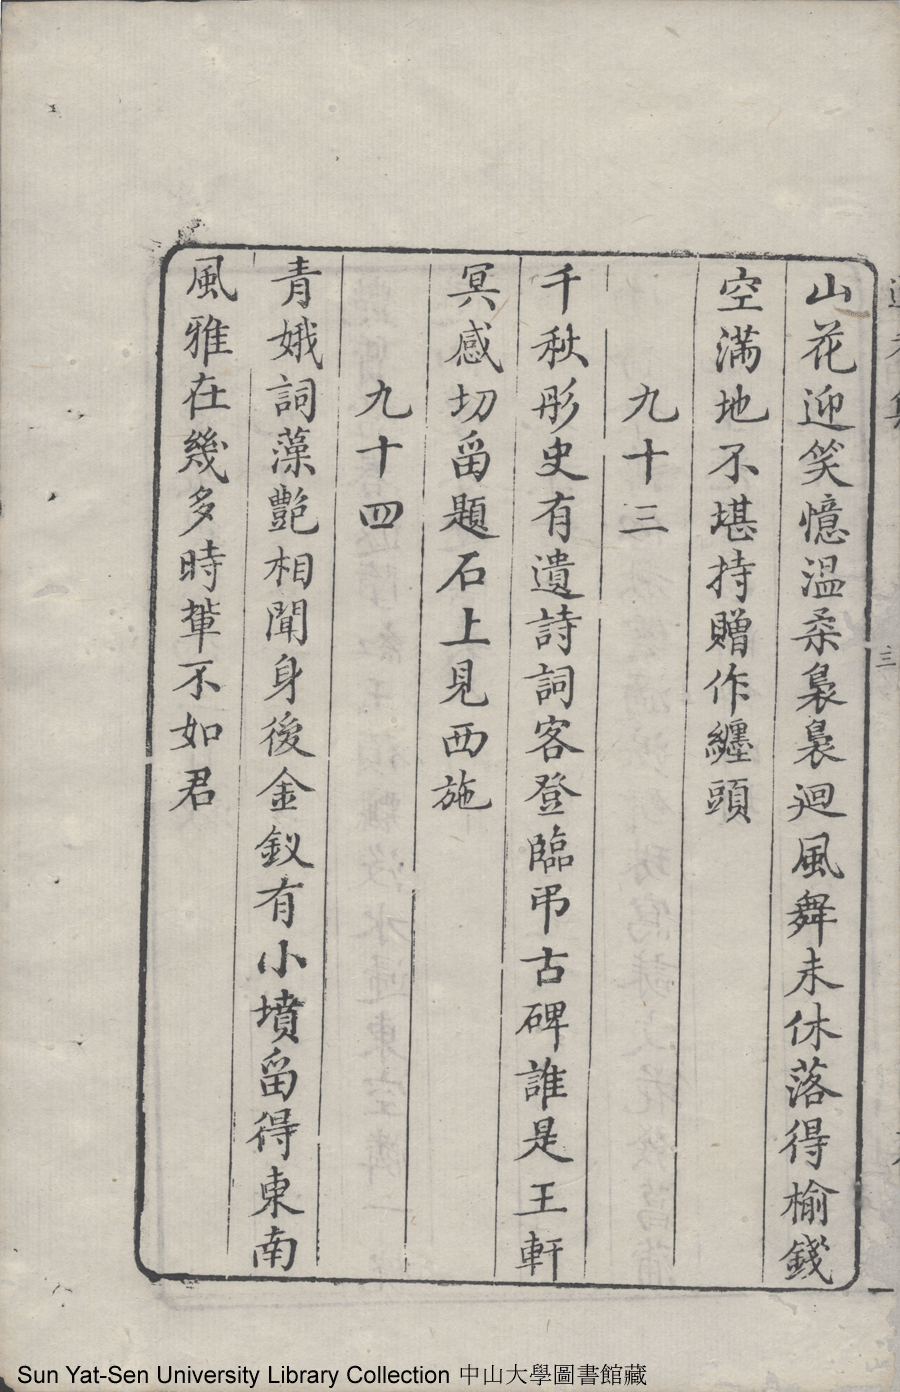 山花迎笑憶温柔裊裊迴風舞未休落得榆錢
空滿地不堪持贈作纏頭
九十三
千秋彤史有遺詩詞客登臨弔古碑誰是王軒
冥感切畱題石上見西施
九十四
青娥詞藻艷相聞身後金釵有小墳畱得東南
風雅在幾多時輩不如君
三
Sun Yat-Sen University Library Collection 中山大學圖書館藏